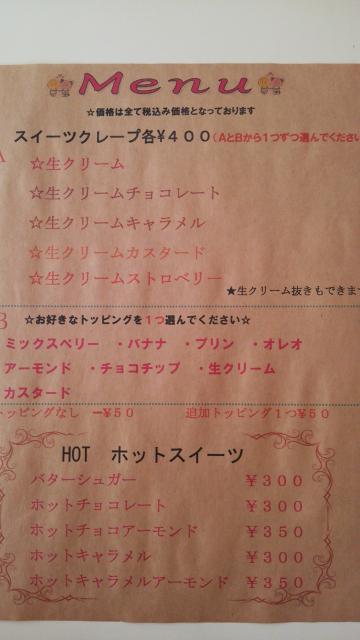 Menu
☆価格は全て税込み価格となっております
スイーツクレープ各¥400(AとBから1つずつ選んでください
A
☆生クリーム
☆生クリームチョコレート
☆生クリームキャラメル
☆生クリームカスタード
☆生クリームストロベリー
★生クリーム抜きもできます
B ☆お好きなトッピングを1つ選んでください☆
ミックスベリー ・バナナ ・プリン ・オレオ
アーモンド ・チョコチップ ・生クリーム
カスタード
トッピングなし ー¥50 追加トッピング1つ¥50
HOT ホットスイーツ
バターシュガー ¥300
ホットチョコレート ¥300
ホットチョコアーモンド ¥350
ホットキャラメル ¥300
ホットキャラメルアーモンド ¥350